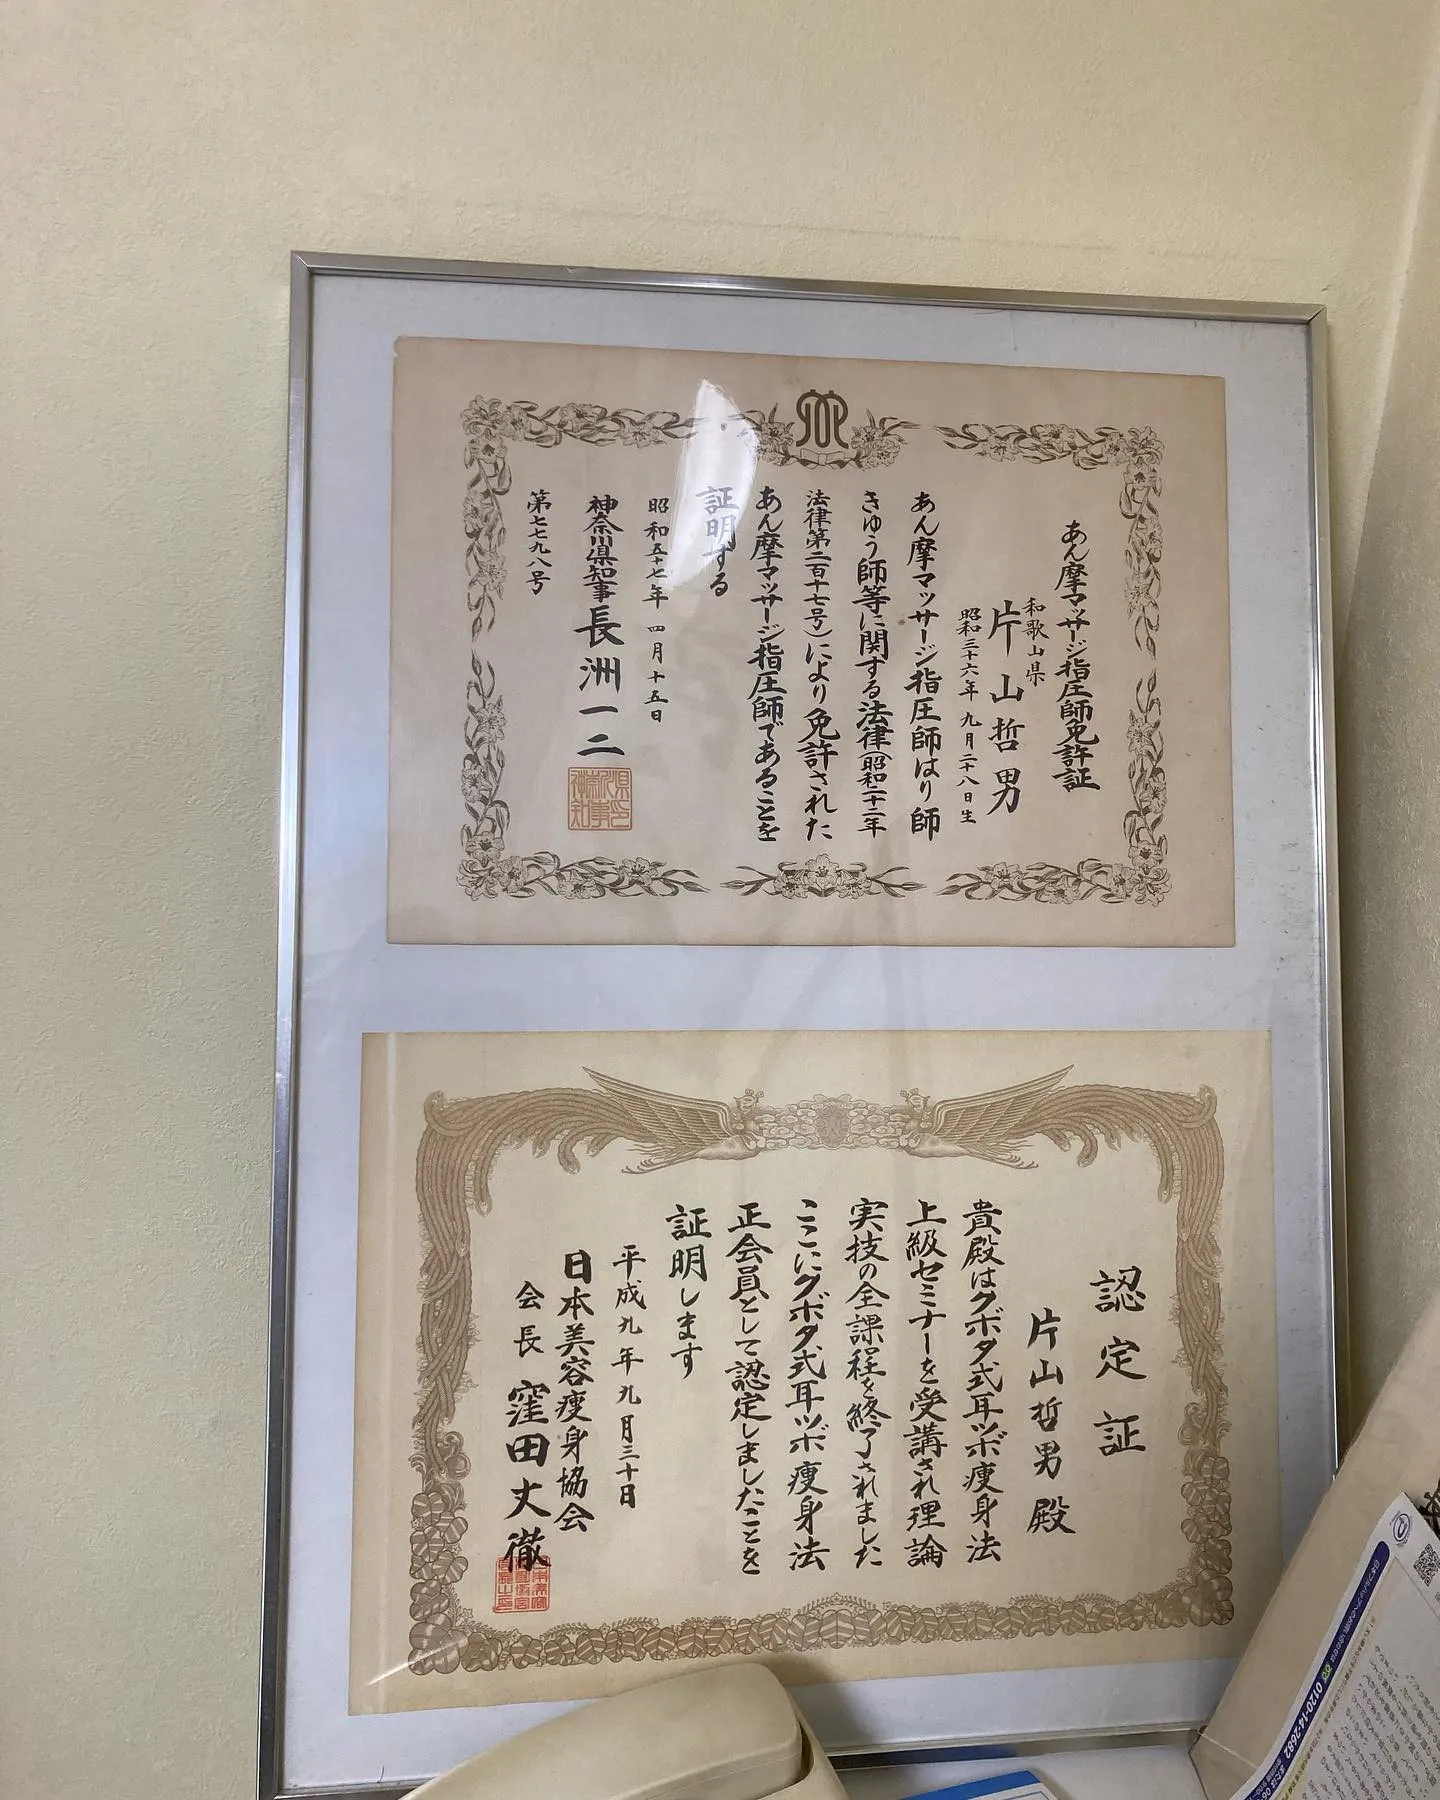 あん摩マッサージ指圧師免許証
和歌山県
片山哲男
昭和三十六年九月二十八日生
あん摩マッサージ指圧師はり師
きゆう師等に関する法律(昭和二十二年
法律第二百十七号)により免許された
あん摩マッサージ指圧師であることを
証明する
昭和五十七年四月十五日
神奈川県知事 長洲一二
第七七九八号
認定証
片山哲男殿
貴殿はクボタ式耳ツボ痩身法
上級セミナーを受講され理論
実技の全課程を終了されました
ここにクボタ式耳ツボ痩身法
正会員として認定しましたことを
証明します
平成九年九月三十日
日本美容痩身協会
会長 窪田丈徹
0120-14-2682